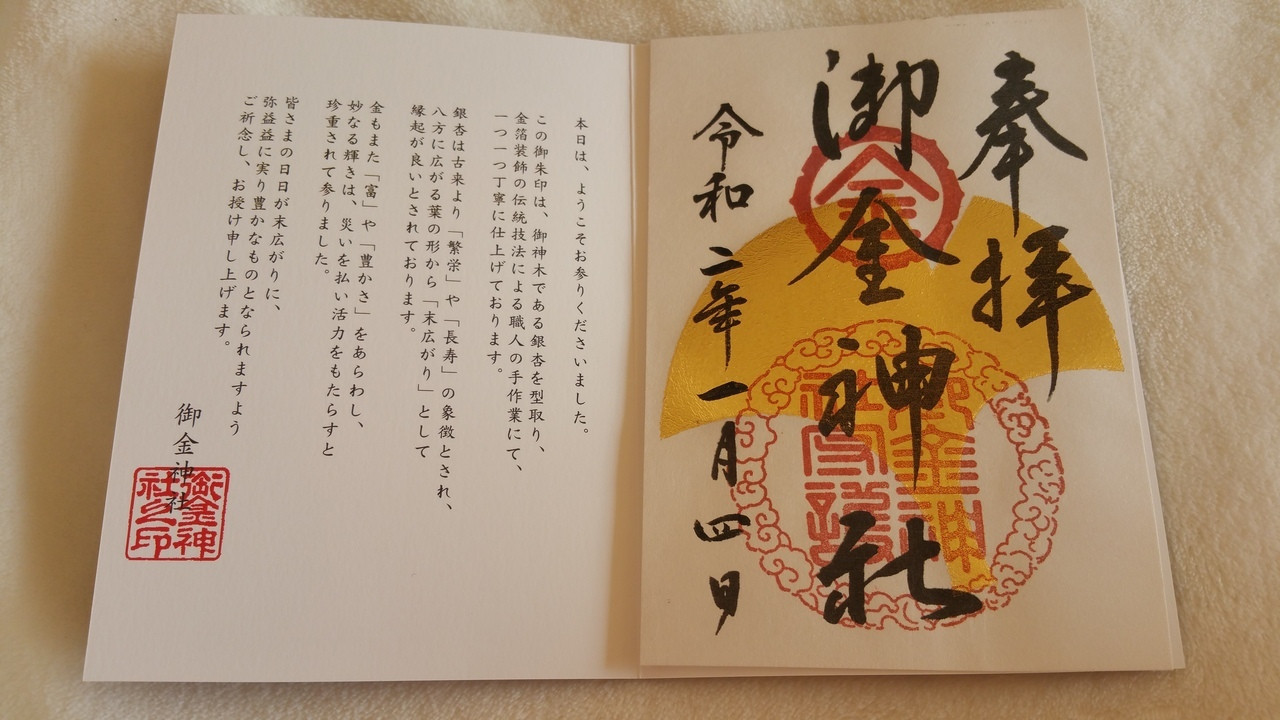 奉拝
御金神社
令和二年一月四日
金
本日は、ようこそお参りくださいました。
この御朱印は、御神木である銀杏を型取り、
金箔装飾の伝統技法による職人の手作業にて、
一つ一つ丁寧に仕上げております。
銀杏は古来より「繁栄」や「長寿」の象徴とされ、
八方に広がる葉の形から「末広がり」として
縁起が良いとされております。
金もまた「富」や「豊かさ」をあらわし、
妙なる輝きは、災いを払い活力をもたらすと
珍重されて参りました。
皆さまの日日が末広がりに、
弥益益に実り豊かなものとなられますよう
ご祈念し、お授け申し上げます。
御金神社
御金神
社之印